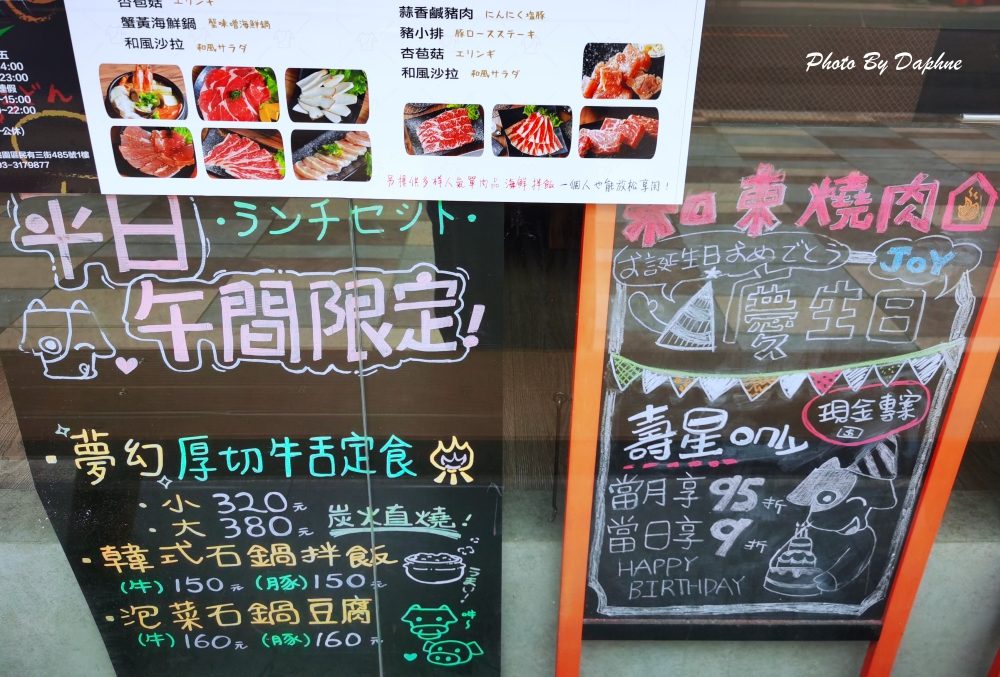 五
4:00
23:00
~15:00
~22:00
公休)
園區民有三街485號1樓
3-3179877
杏苞菇 エリンギ
蟹黃海鮮鍋 蟹味噌海鮮鍋
和風沙拉 和風サラダ
蒜香鹹豬肉 にんにく塩豚
豬小排 豚ロースステーキ
杏苞菇 エリンギ
和風沙拉 和風サラダ
另提供多樣人氣單肉品 海鮮 拌飯 一個人也能放鬆享用！
Photo By Daphne
平日
・ランチセット・
午間限定!
・夢幻厚切牛舌定食
・小 320元
・大 380元
炭火直燒!
・韓式石鍋拌飯
(牛) 150元 (豚) 150元
うまい!
・泡菜石鍋豆腐
(牛) 160元 (豚) 160元
哞~
東燒肉
お誕生日おめでとう
JOY
慶生日
壽星only
現金專案
當月享95折
當日享9折
HAPPY
BIRTHDAY